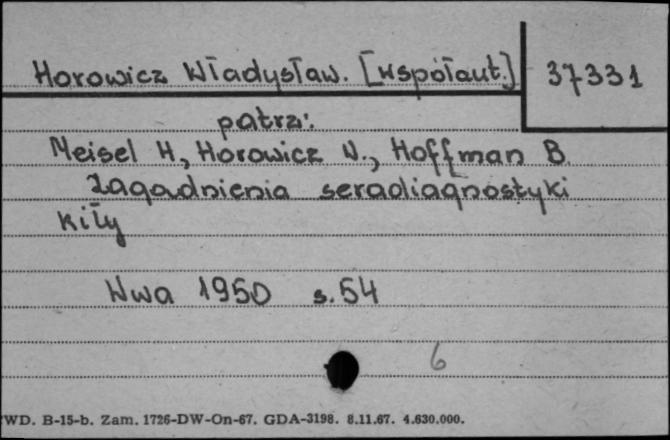 Horowicz Władysław. [współaut.] 37331
patrz:
Meisel H., Horowicz W., Hoffman B.
Zagadnienia seradiagnostyki
kiły
Wwa 1950 s. 54
6
WD. B-15-b. Zam. 1726-DW-On-67. GDA-3198. 8.11.67. 4.630.000.